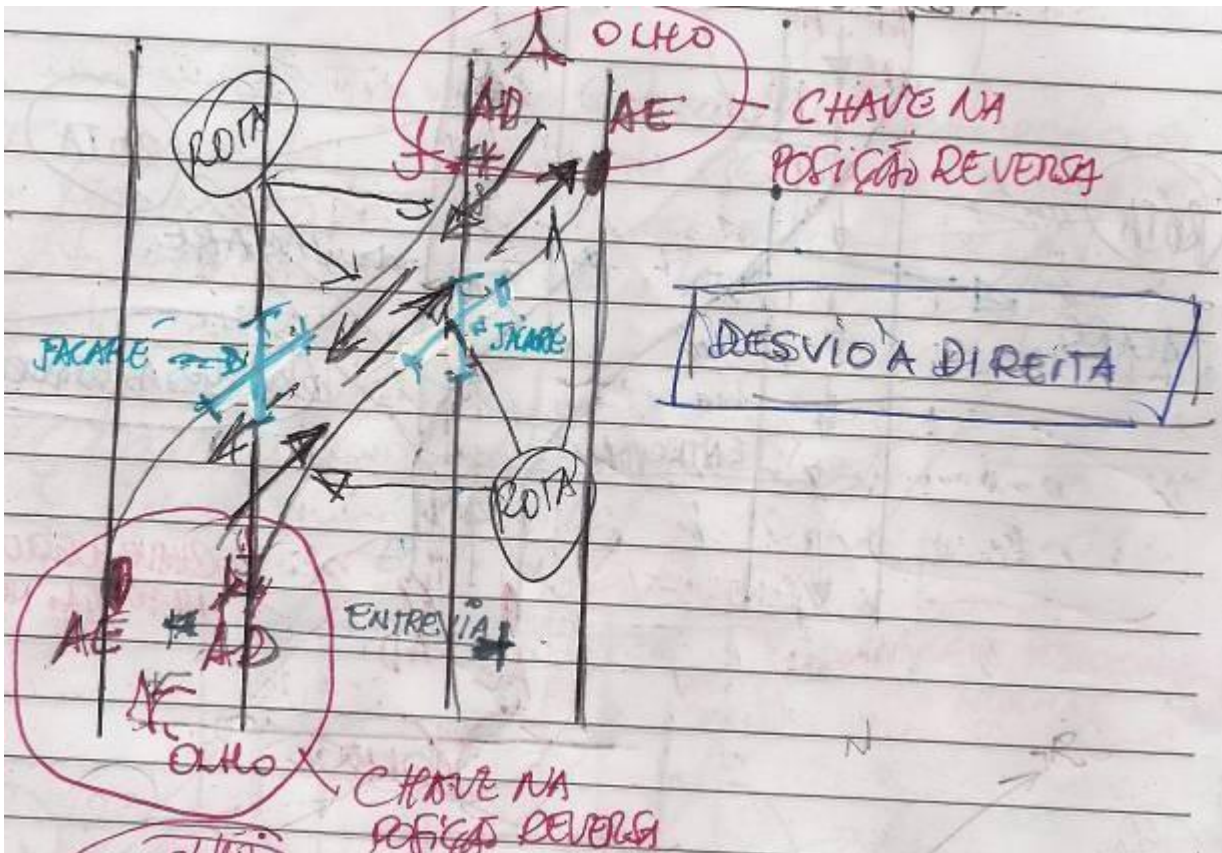 OLHO
AD AE
CHAVE NA
POSIÇÃO REVERSA
ROTA
JACARE
JACARE
DESVIO À DIREITA
ROTA
ENTREVIA
AE AD
OLHO
CHAVE NA
POSIÇÃO REVERSA